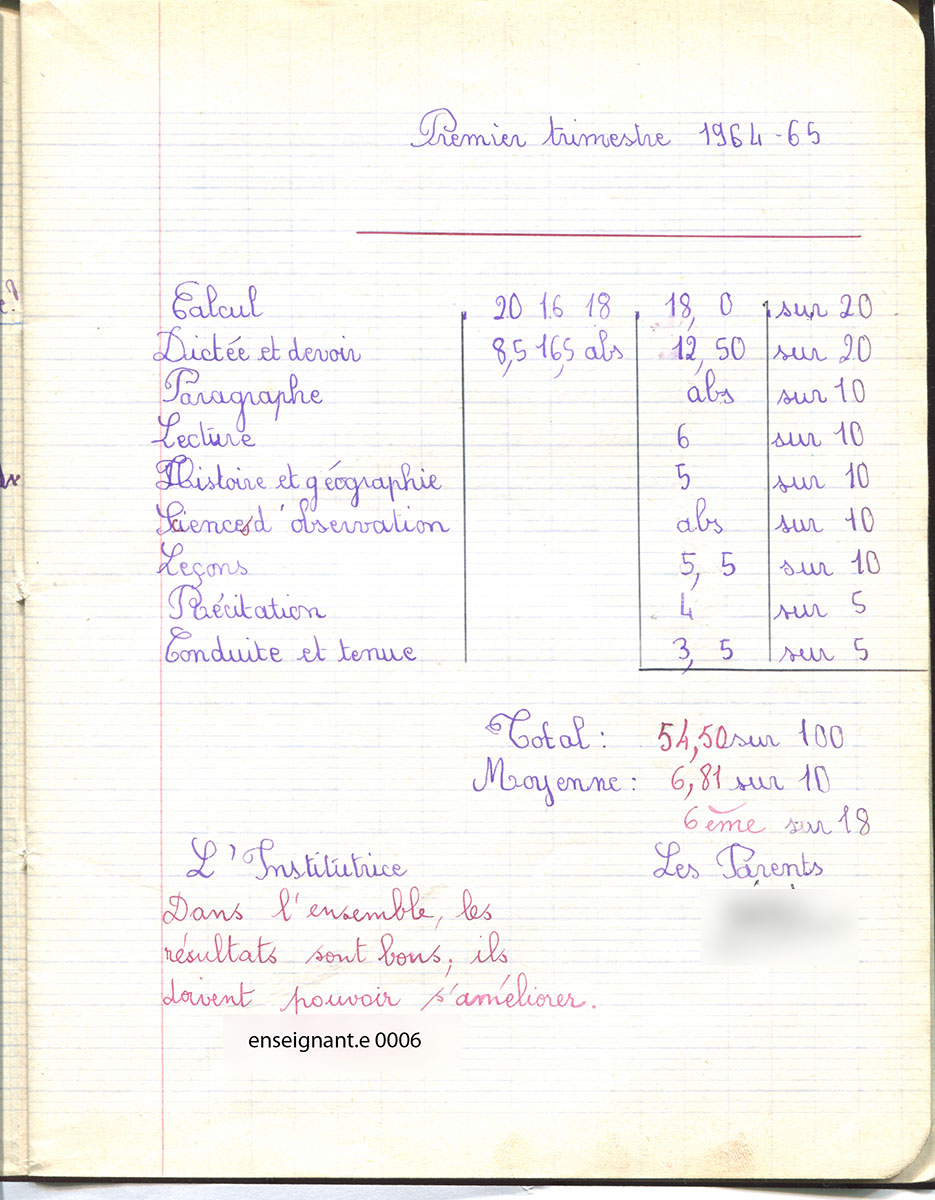 Premier trimestre 1964-65
Calcul 20 16 18 18, 0 sur 20
Dictée et devoir 8,5 16,5 abs 12, 50 sur 20
Paragraphe abs sur 10
Lecture 6 sur 10
Histoire et géographie 5 sur 10
Sciences d'observation abs sur 10
Leçons 5, 5 sur 10
Récitation 4 sur 5
Conduite et tenue 3, 5 sur 5
Total : 54,50 sur 100
Moyenne : 6,81 sur 10
6ème sur 18
L'Institutrice Les Parents
Dans l'ensemble, les
résultats sont bons; ils
doivent pouvoir s'améliorer.
enseignant.e 0006